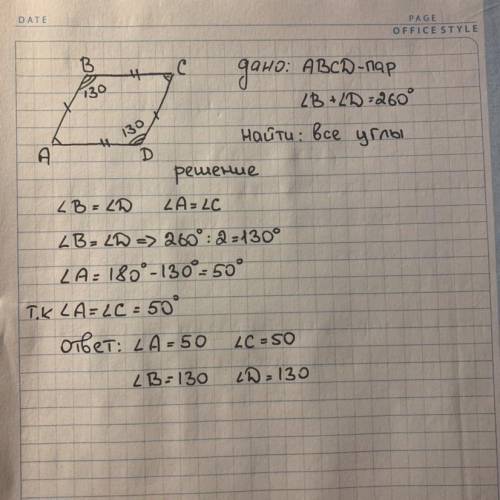 DATE
PAGE
OFFICE STYLE
B C
130
130
A D
дано: ABCD-пар
∠B + ∠D = 260°
найти: все углы
решение
∠B = ∠D ∠A = ∠C
∠B = ∠D => 260° : 2 = 130°
∠A = 180° - 130° = 50°
т.к ∠A = ∠C = 50°
ответ: ∠A = 50 ∠C = 50
∠B = 130 ∠D = 130